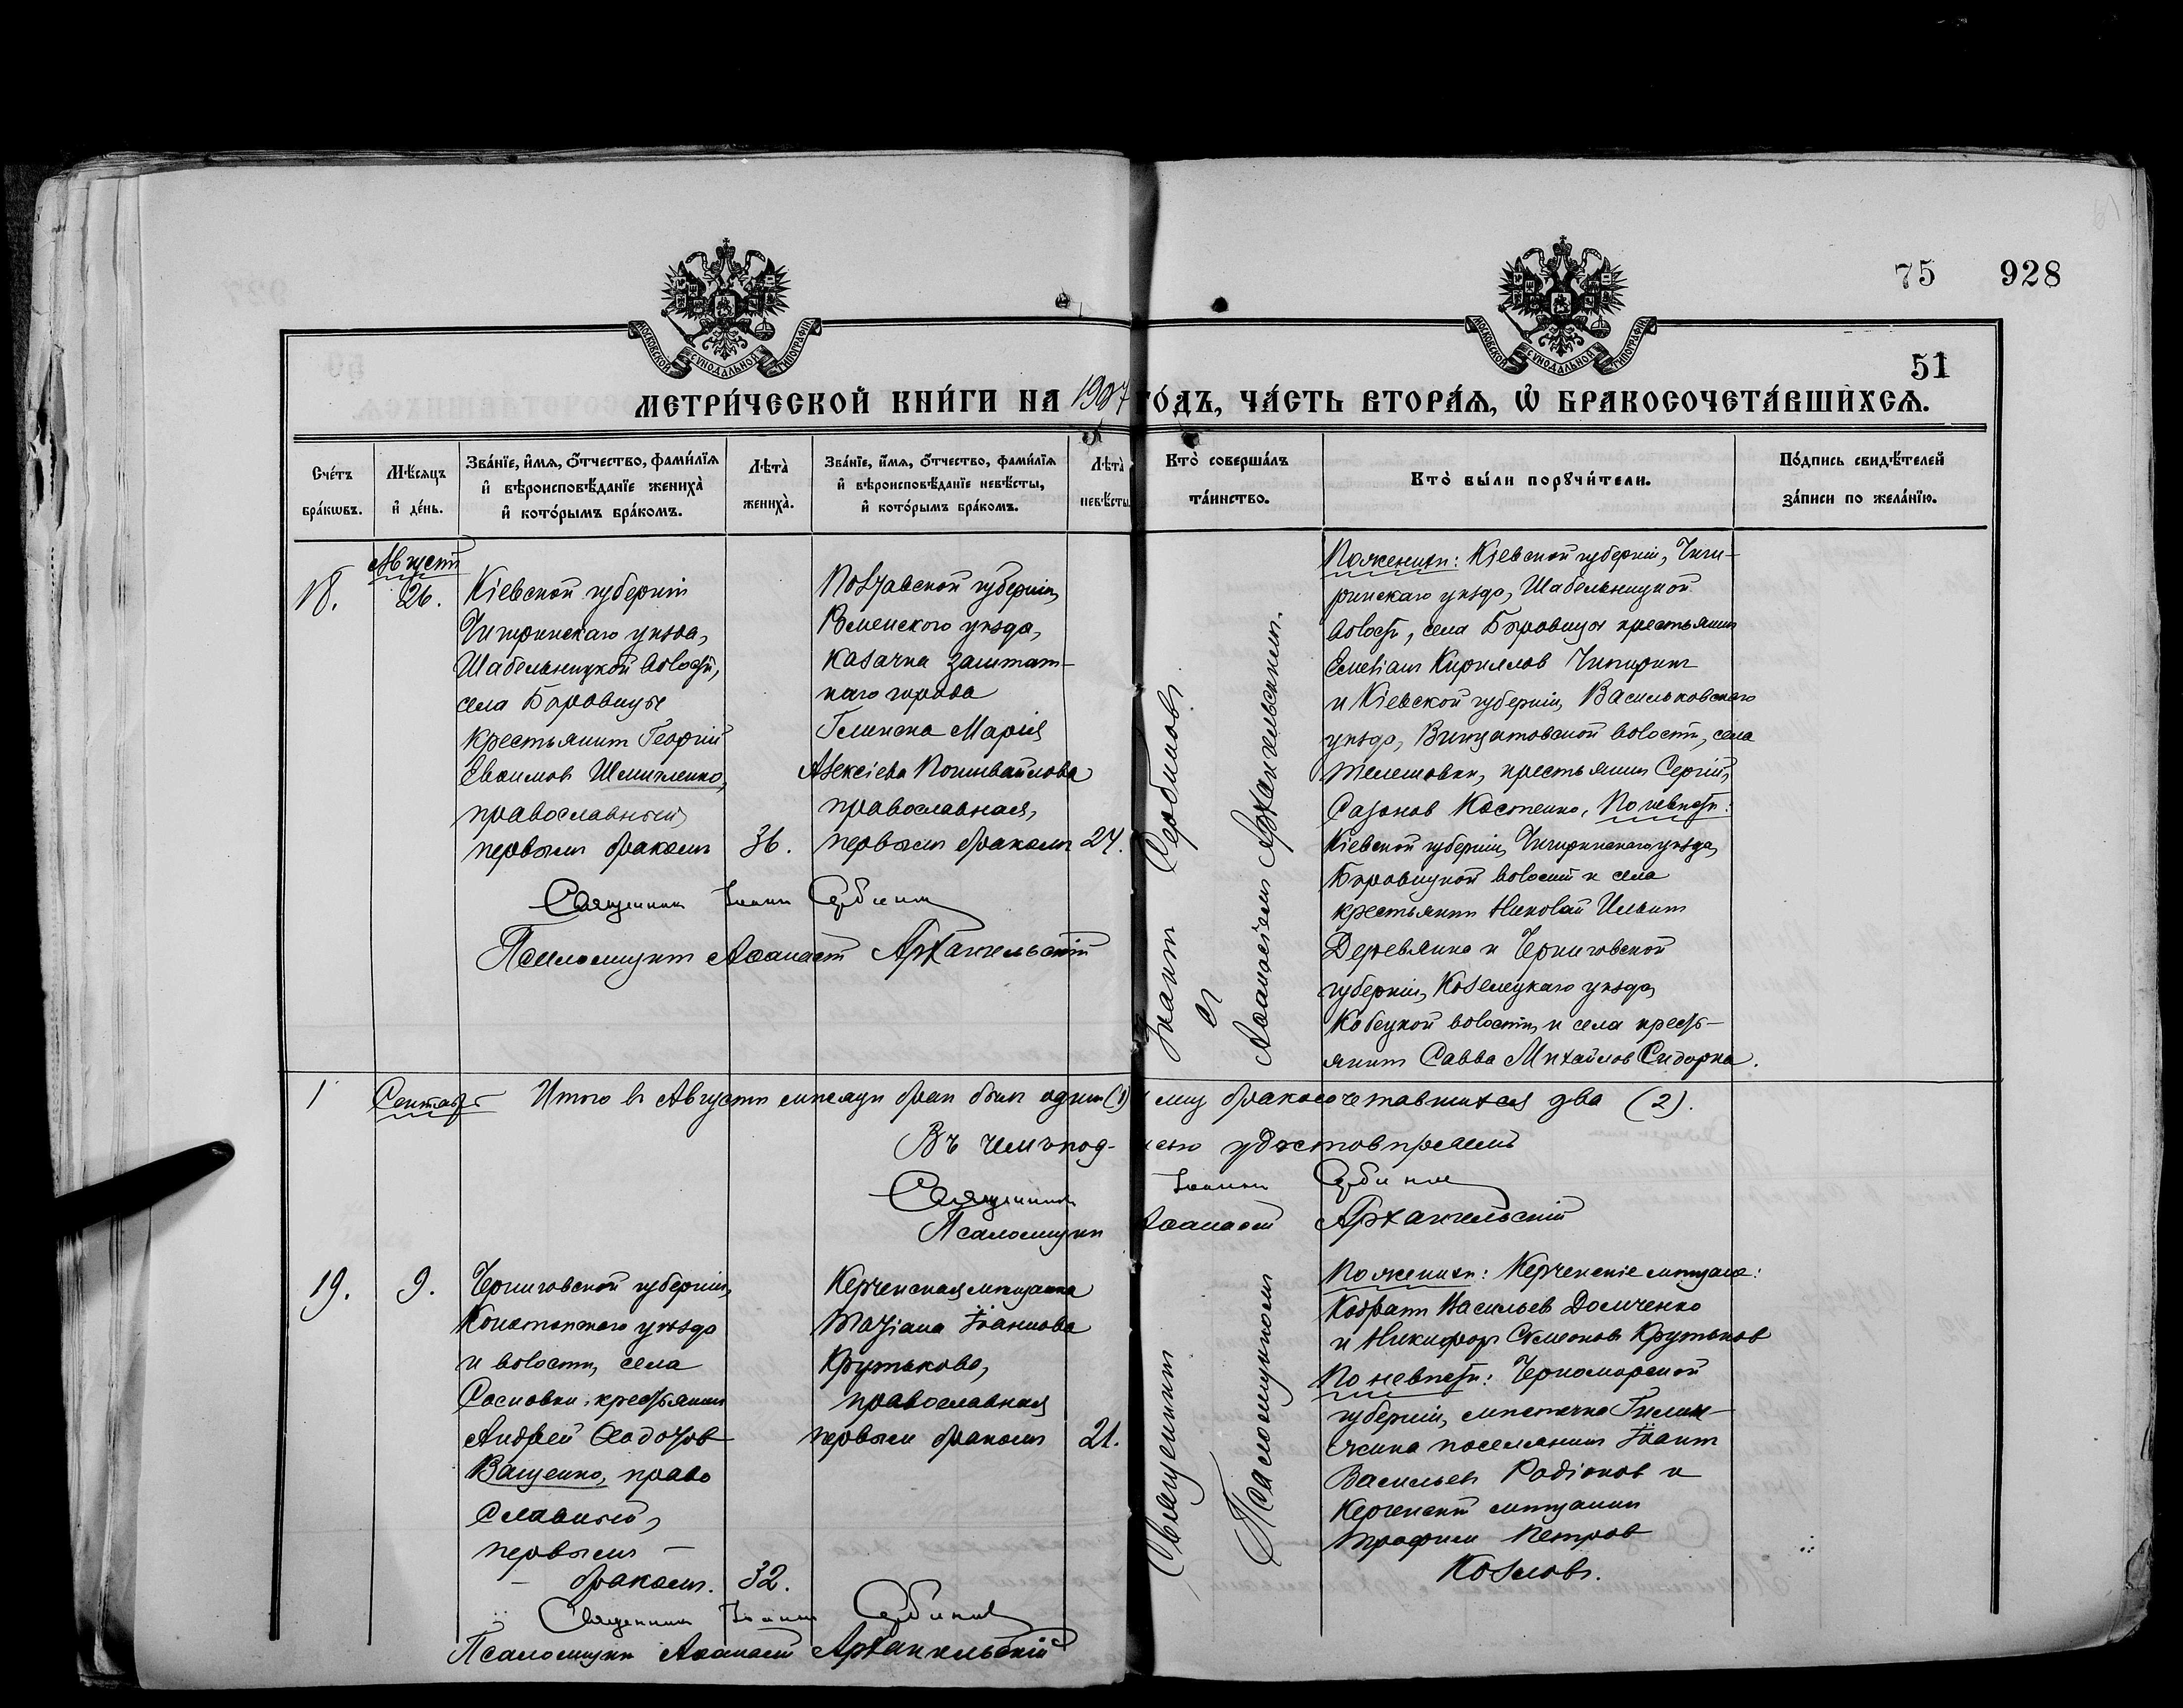 75 928
51
МОСКОВСКОЙ СѴНОДАЛЬНОЙ ТИПОГРАФІИ
МОСКОВСКОЙ СѴНОДАЛЬНОЙ ТИПОГРАФІИ
МЕТРИ́ЧЕСКОЙ КНИ́ГИ НА 1907 ГО́ДЪ, ЧА́СТЬ ВТОРА́Ѧ, Ѽ БРАКОСОЧЕТА́ВШИХСѦ.
Сче́тъ
бра́кѡвъ.
Мѣ́сяцъ
и҆ де́нь.
Зва́нїе, и҆́мѧ, ѻ҆́тчество, фами́лїѧ
и҆ вѣроисповѣ́данїе жениха̀
и҆ кото́рымъ бра́комъ.
Лѣта̀
жениха̀.
Зва́нїе, и҆́мѧ, ѻ҆́тчество, фами́лїѧ
и҆ вѣроисповѣ́данїе невѣ́сты,
и҆ кото́рымъ бра́комъ.
Лѣта̀
невѣ́сты
Кто̀ соверша́лъ
та́инство.
Кто̀ бы́ли порꙋчи́тели.
По́дпись свидѣ́телей
за́писи по жела́нїю.
18.
Августъ
26.
Кіевской губерніи
Чигиринскаго уѣзда,
Шабельницкой волости,
села Боровицы
крестьянинъ Георгій
Евѳимовъ
православный,
первымъ бракомъ
36.
Полтавской губерніи,
уѣзда,
казачка заштат-
наго города
Глинска Марія
Алексіева
православная,
первымъ бракомъ
24.
Священникъ Іоаннъ Сербиновъ
Псаломщикъ Аѳанасій Архангельскій
Священникъ Іоаннъ Сербиновъ
съ
Псаломщикомъ Аѳанасіемъ Архангельскимъ.
По женихѣ: Кіевской губерніи, Чиги-
ринскаго уѣзда, Шабельницкой
волости, села Боровицы крестьянинъ
Емеліанъ Кирилловъ Чигиринъ
и Кіевской губерніи, Васильковскаго
уѣзда, волости, села
Телешовки, крестьянинъ Сергій
Сазоновъ Костенко. По невѣстѣ:
Кіевской губерніи, Чигиринскаго уѣзда,
Боровицкой волости и села
крестьянинъ Николай Ильинъ
Деревянко и Черниговской
губерніи, Козелецкаго уѣзда,
волости, и села кресть-
янинъ Савва Михайловъ Сидорка.
1 Сентябрь Итого въ Августѣ мѣсяцѣ бракъ былъ одинъ (1) бракосочетавшихся два (2).
Въ чемъ под- удостовѣряемъ
Священникъ Іоаннъ Сербиновъ
Псаломщикъ Аѳанасій Архангельскій
19.
9.
Черниговской губерніи,
Конотопскаго уѣзда
и волости, села
Сосновки крестьянинъ
Андрей Ѳедотовъ
Ващенко, право
славный,
первымъ –
– бракомъ.
32.
Керченская мѣщанка
Татіана Іоаннова
Крутькова,
православная
первымъ бракомъ
21.
По женихѣ: Керченскіе мѣщане:
Кодратъ Васильевъ Домченко
и Никифоръ Симеоновъ Крутьковъ
По невѣстѣ: Черноморской
губерніи, мѣстечка Геленд-
жика поселянинъ Іоаннъ
Васильевъ Родіоновъ и
Керченскій мѣщанинъ
Трофимъ Петровъ
Козловъ.
Священникъ Іоаннъ Сербиновъ
Псаломщикъ Аѳанасій Архангельскій